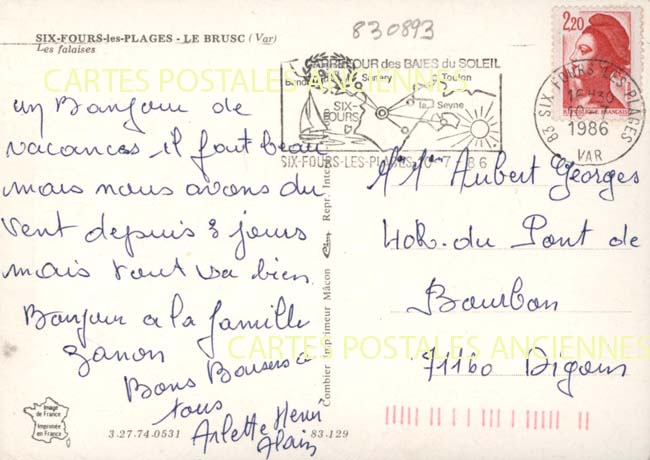 830893
SIX-FOURS-les-PLAGES - LE BRUSC (Var)
Les falaises
CARTES POSTALES ANCIENNES
CARREFOUR des BAIES du SOLEIL
Sanary Toulon
la Seyne
SIX-FOURS
SIX-FOURS-LES-PLAGES
2,20
RÉPUBLIQUE FRANÇAISE
83 SIX FOURS-LES-PLAGES
1986
VAR
un Bonjour de
vacances il fait beau
mais nous avons du
vent depuis 3 jours
mais tout va bien
Bonjour a la famille
Zanon
Bons Baisers a
tous
Arlette Henri
Alain
Combier Imprimeur Mâcon
Mr Mme Aubert Georges
du Pont de
Bourbon
71160 Digoin
CARTES POSTALES ANCIENNES
Image de France
Imprimée en France
3.27.74.0531
83.129